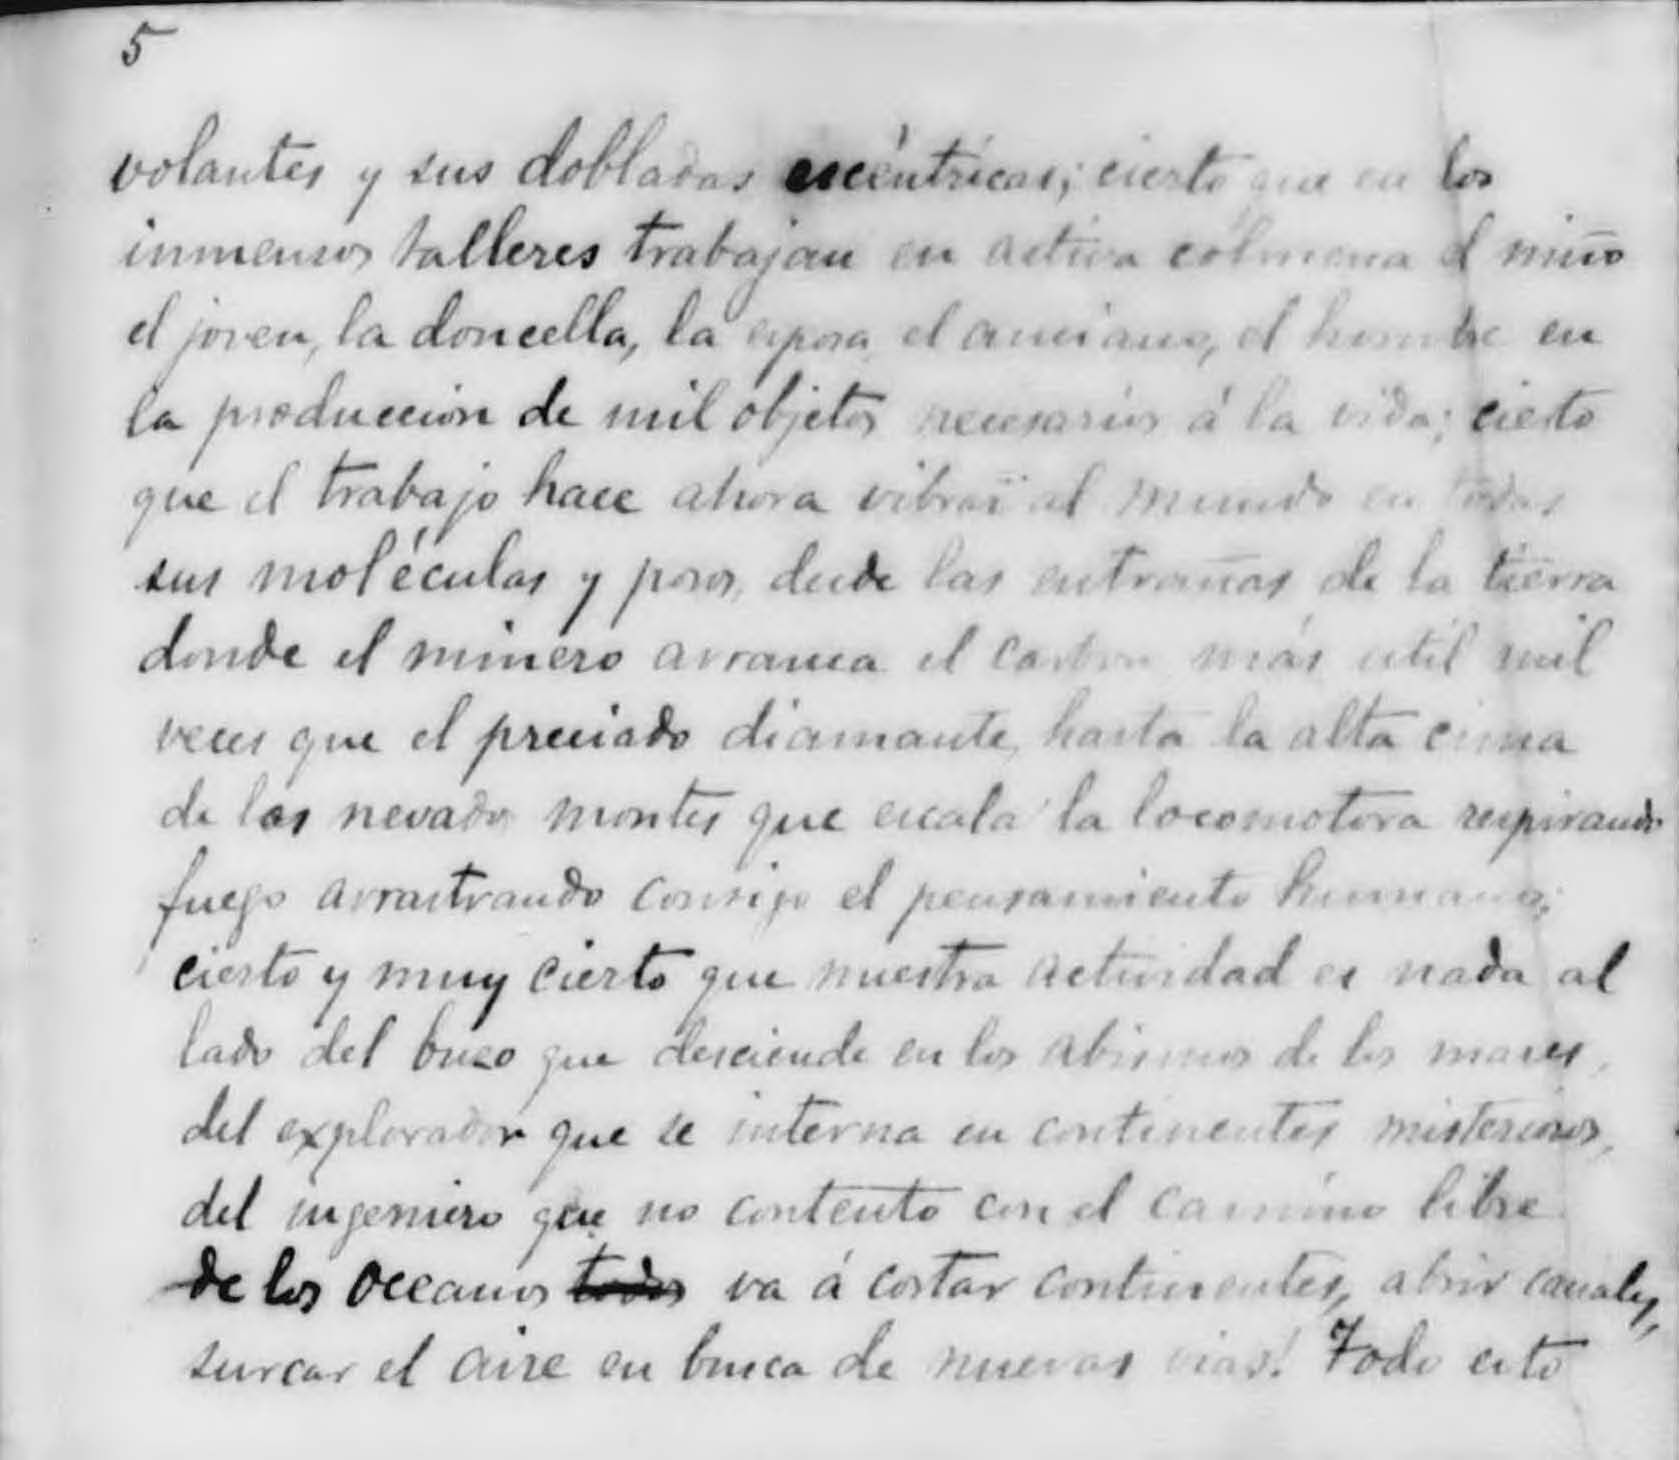 5
volantes y sus dobladas escéntricas; cierto que en los
inmensos talleres trabajan en activa colmena el niño
el joven, la doncella, la esposa, el anciano, el hombre en
la producción de mil objetos necesarios á la vida; cierto
que el trabajo hace ahora vibrar al mundo en todas
sus moléculas y poros, desde las entrañas de la tierra
donde el minero arranca el carbon más util mil
veces que el preciado diamante, hasta la alta cima
de los nevados montes que escala la locomotora respirando
fuego arrastrando consigo el pensamiento humano;
cierto y muy cierto que nuestra actividad es nada al
lado del buzo que desciende en los abismos de los mares,
del explorador que se interna en continentes misteriosos,
del ingeniero que no contento con el camino libre
de los oceanos todos va á cortar continentes, abrir canales,
surcar el aire en busca de nuevas vias! Todo esto